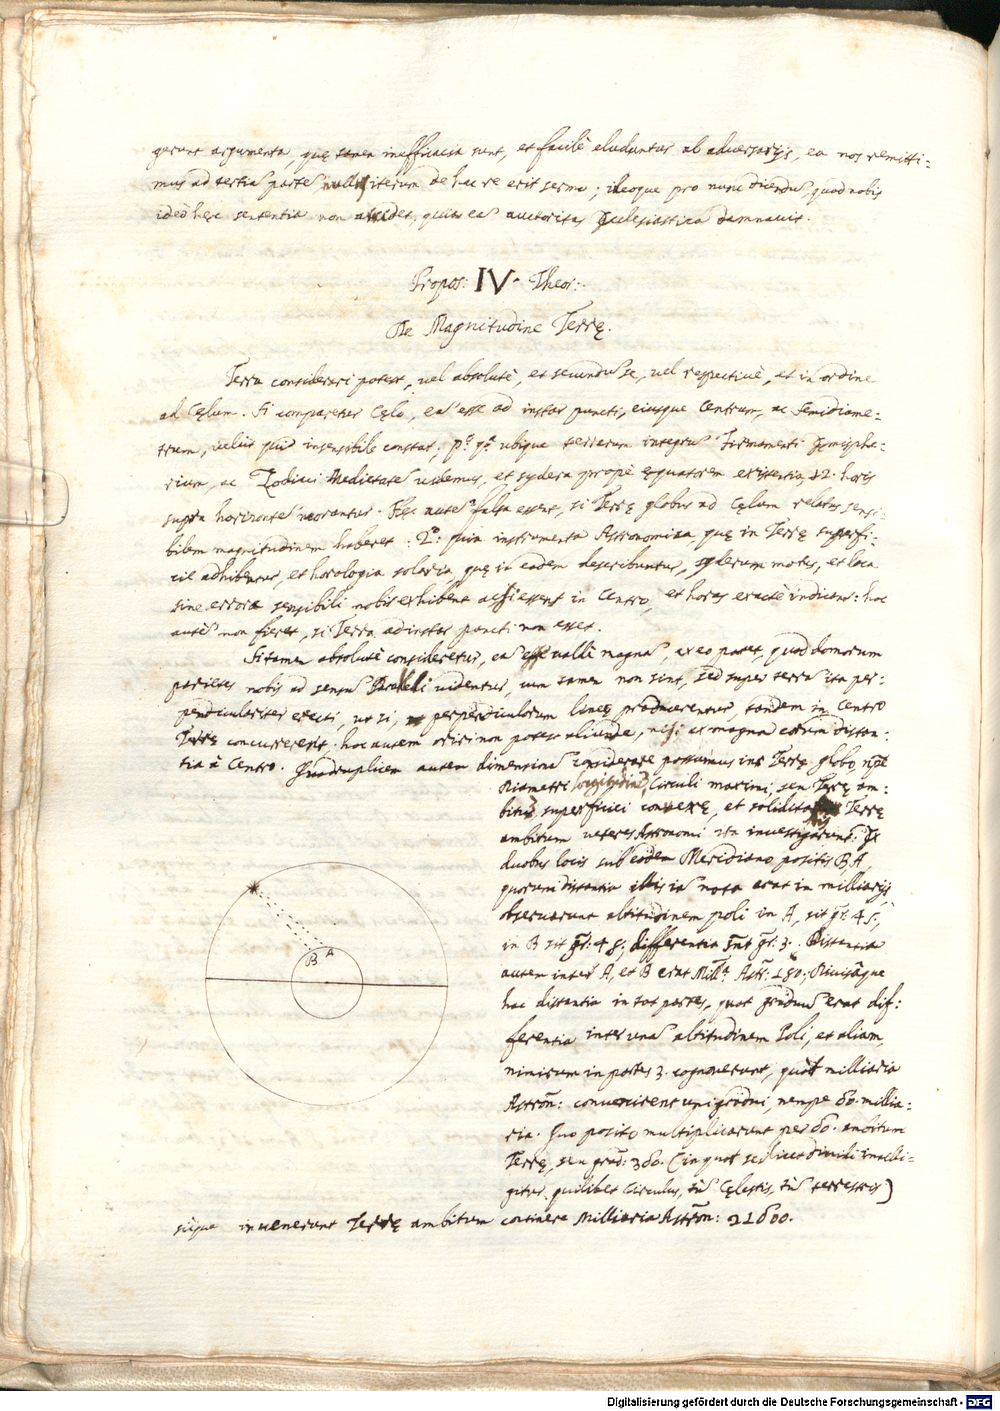 gerunt argumenta, quę tamen inefficacia sunt, et facilè eluduntur ab adversarijs, ea nos remitti=
mus ad tertiã partẽ iterum de hac re erit sermo; ideoque pro nunc dicendũ, quod nobis
ideò hęc sententia non arridet, quia eã auctoritas Ecclesiastica damnavit.
Propos: IV. Theor:
De Magnitudine Terrę.
Terra considerari potest, vel absolutè, et secundũ se, vel respectivè, et in ordine
ad Cęlum. Si comparetur Cęlo, eã esse ad instar puncti, eiusque Centrum, ac Semidiame=
trum, velut quid insensibile constat. pº qª ubique terrarum integrũ Firmamenti Hemisphę=
rium, ac Zodiaci Medietatẽ videmus, et sydera propè ęquatorem existentia 12. horis
supra horizontẽ morantur. Hęc autẽ falsa essent, si Terrę globus ad Cęlum relatus sensi=
bilem magnitudinem haberet. 2º: quia instrumenta Astronomica, quę in Terrę superfi=
cie adhibentur, et horologia solaria, quę in eadem describuntur, syderum motus, et loca
sine errore sensibili nobis exhibent ac si essent in Centro, et horas exactè indicant: hoc
autẽ non fieret, si Terra ad instar puncti non esset.
Si tamen absolutè consideretur, eã esse valdè magnã, ex eo patet, quod domorum
parietes nobis ad sensũ Paralleli videntur, cum tamen non sint, sed super terrã ita per=
pendiculariter erecti, ut si, perpendiculorum lineę producerentur, tandem in Centro
Terrę concurrerent; hoc autem oriri non potest aliunde, nisi ex magna eorum distan=
tia à Centro. Quadruplicem autem dimensionẽ considerare possumus in Terrę globo, npẽ
Diametri longitudinẽ, Circuli maximi, seu Terrę am=
bitus, superficiei convexę, et soliditatis Terrę
ambitum veteres Astronomi ita investigarunt: Ex
duobus locis sub eodem Meridiano positis B, A,
quorum distantia illis iã nota erat in milliarijs
observarunt altitudinem poli in A, sit gr: 45;
in B sit gr: 48; differentia sunt gr: 3. Distantia
autem inter A, et B erat Mill: Astr: 180; Divisaque
hac distantia in tot partes, quot graduũ erat dif=
ferentia inter unã altitudinem Poli, et aliam,
nimirum in partes 3. cognoverunt, quot milliaria
Astron: convenirent uni gradui, nempe 60. millia=
ria. Quo posito multiplicarunt per 60. ambitum
Terrę, seu grad: 360. (in quot scilicet dividi intelli=
gitur quilibet Circulus, tũ Cęlestis, tũ terrestris)
sicque invenerunt Terrę ambitum continere Milliaria Astron: 21600.
B A
Digitalisierung gefördert durch die Deutsche Forschungsgemeinschaft - DFG